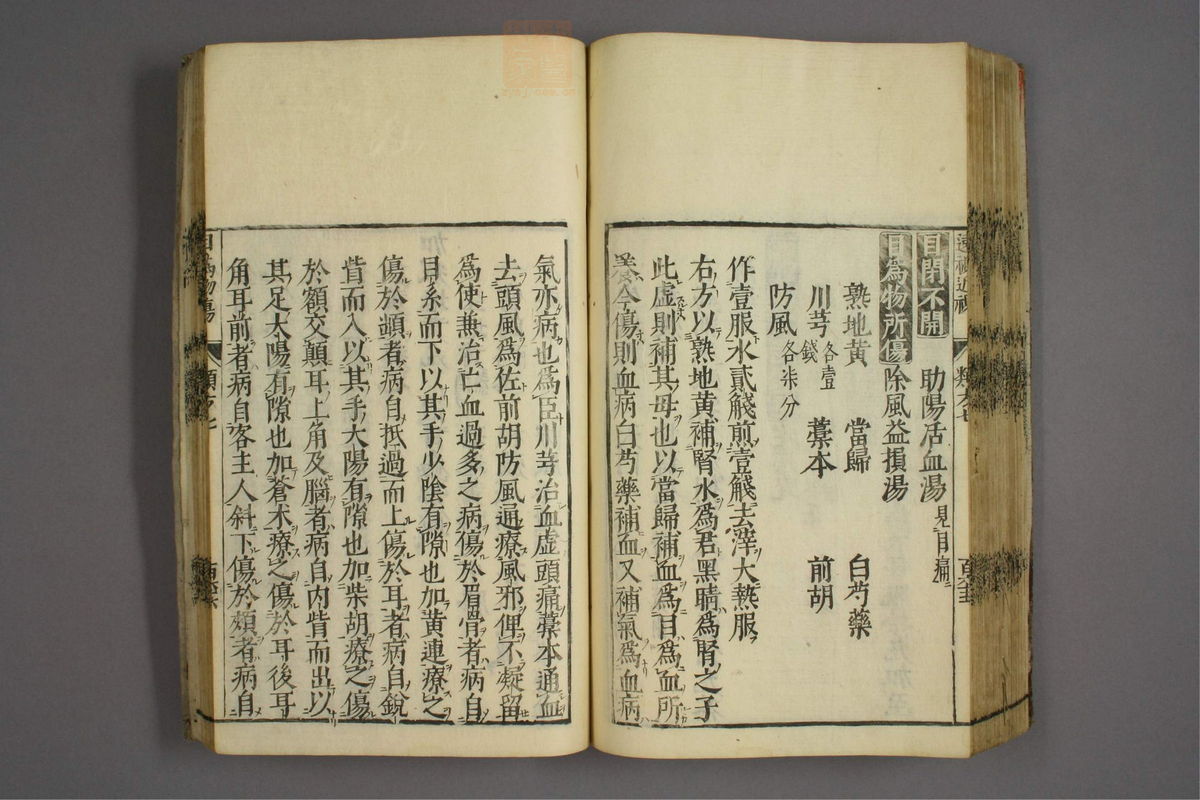 目閉不開 助陽活血湯 見目痛
目為物所傷 除風益損湯
熟地黄 當歸 白芍藥
川芎 各壹錢 藁本 前胡
防風 各柒分
作壹服水貳盞煎壹盞去滓大熱服
右方以熟地黄補腎水為君黑睛為腎之子
此虚則補其母也以當歸補血為目為血所
養今傷則血病白芍藥補血又補氣為血病
氣亦病也為臣川芎治血虚頭痛藁本通血
去頭風為佐前胡防風遍療風邪俾不凝留
為使兼治亡血過多之病傷於眉骨者病自
目系而下以其手少陰有隙也加黄連療之
傷於䪼者病自抵過而上傷於耳者病自銳
眥而入以其手太陽有隙也加柴胡療之傷
於額交顛耳上角及腦者病自内眥而出以
其足太陽有隙也加蒼朮療之傷於耳後耳
角耳前者病自客主人斜下傷於頰者病自